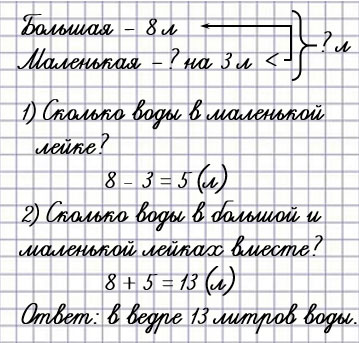 Большая – 8 л
Маленькая – ? на 3 л < ? л
1) Сколько воды в маленькой
лейке?
8 – 3 = 5 (л)
2) Сколько воды в большой и
маленькой лейках вместе?
8 + 5 = 13 (л)
Ответ: в ведре 13 литров воды.